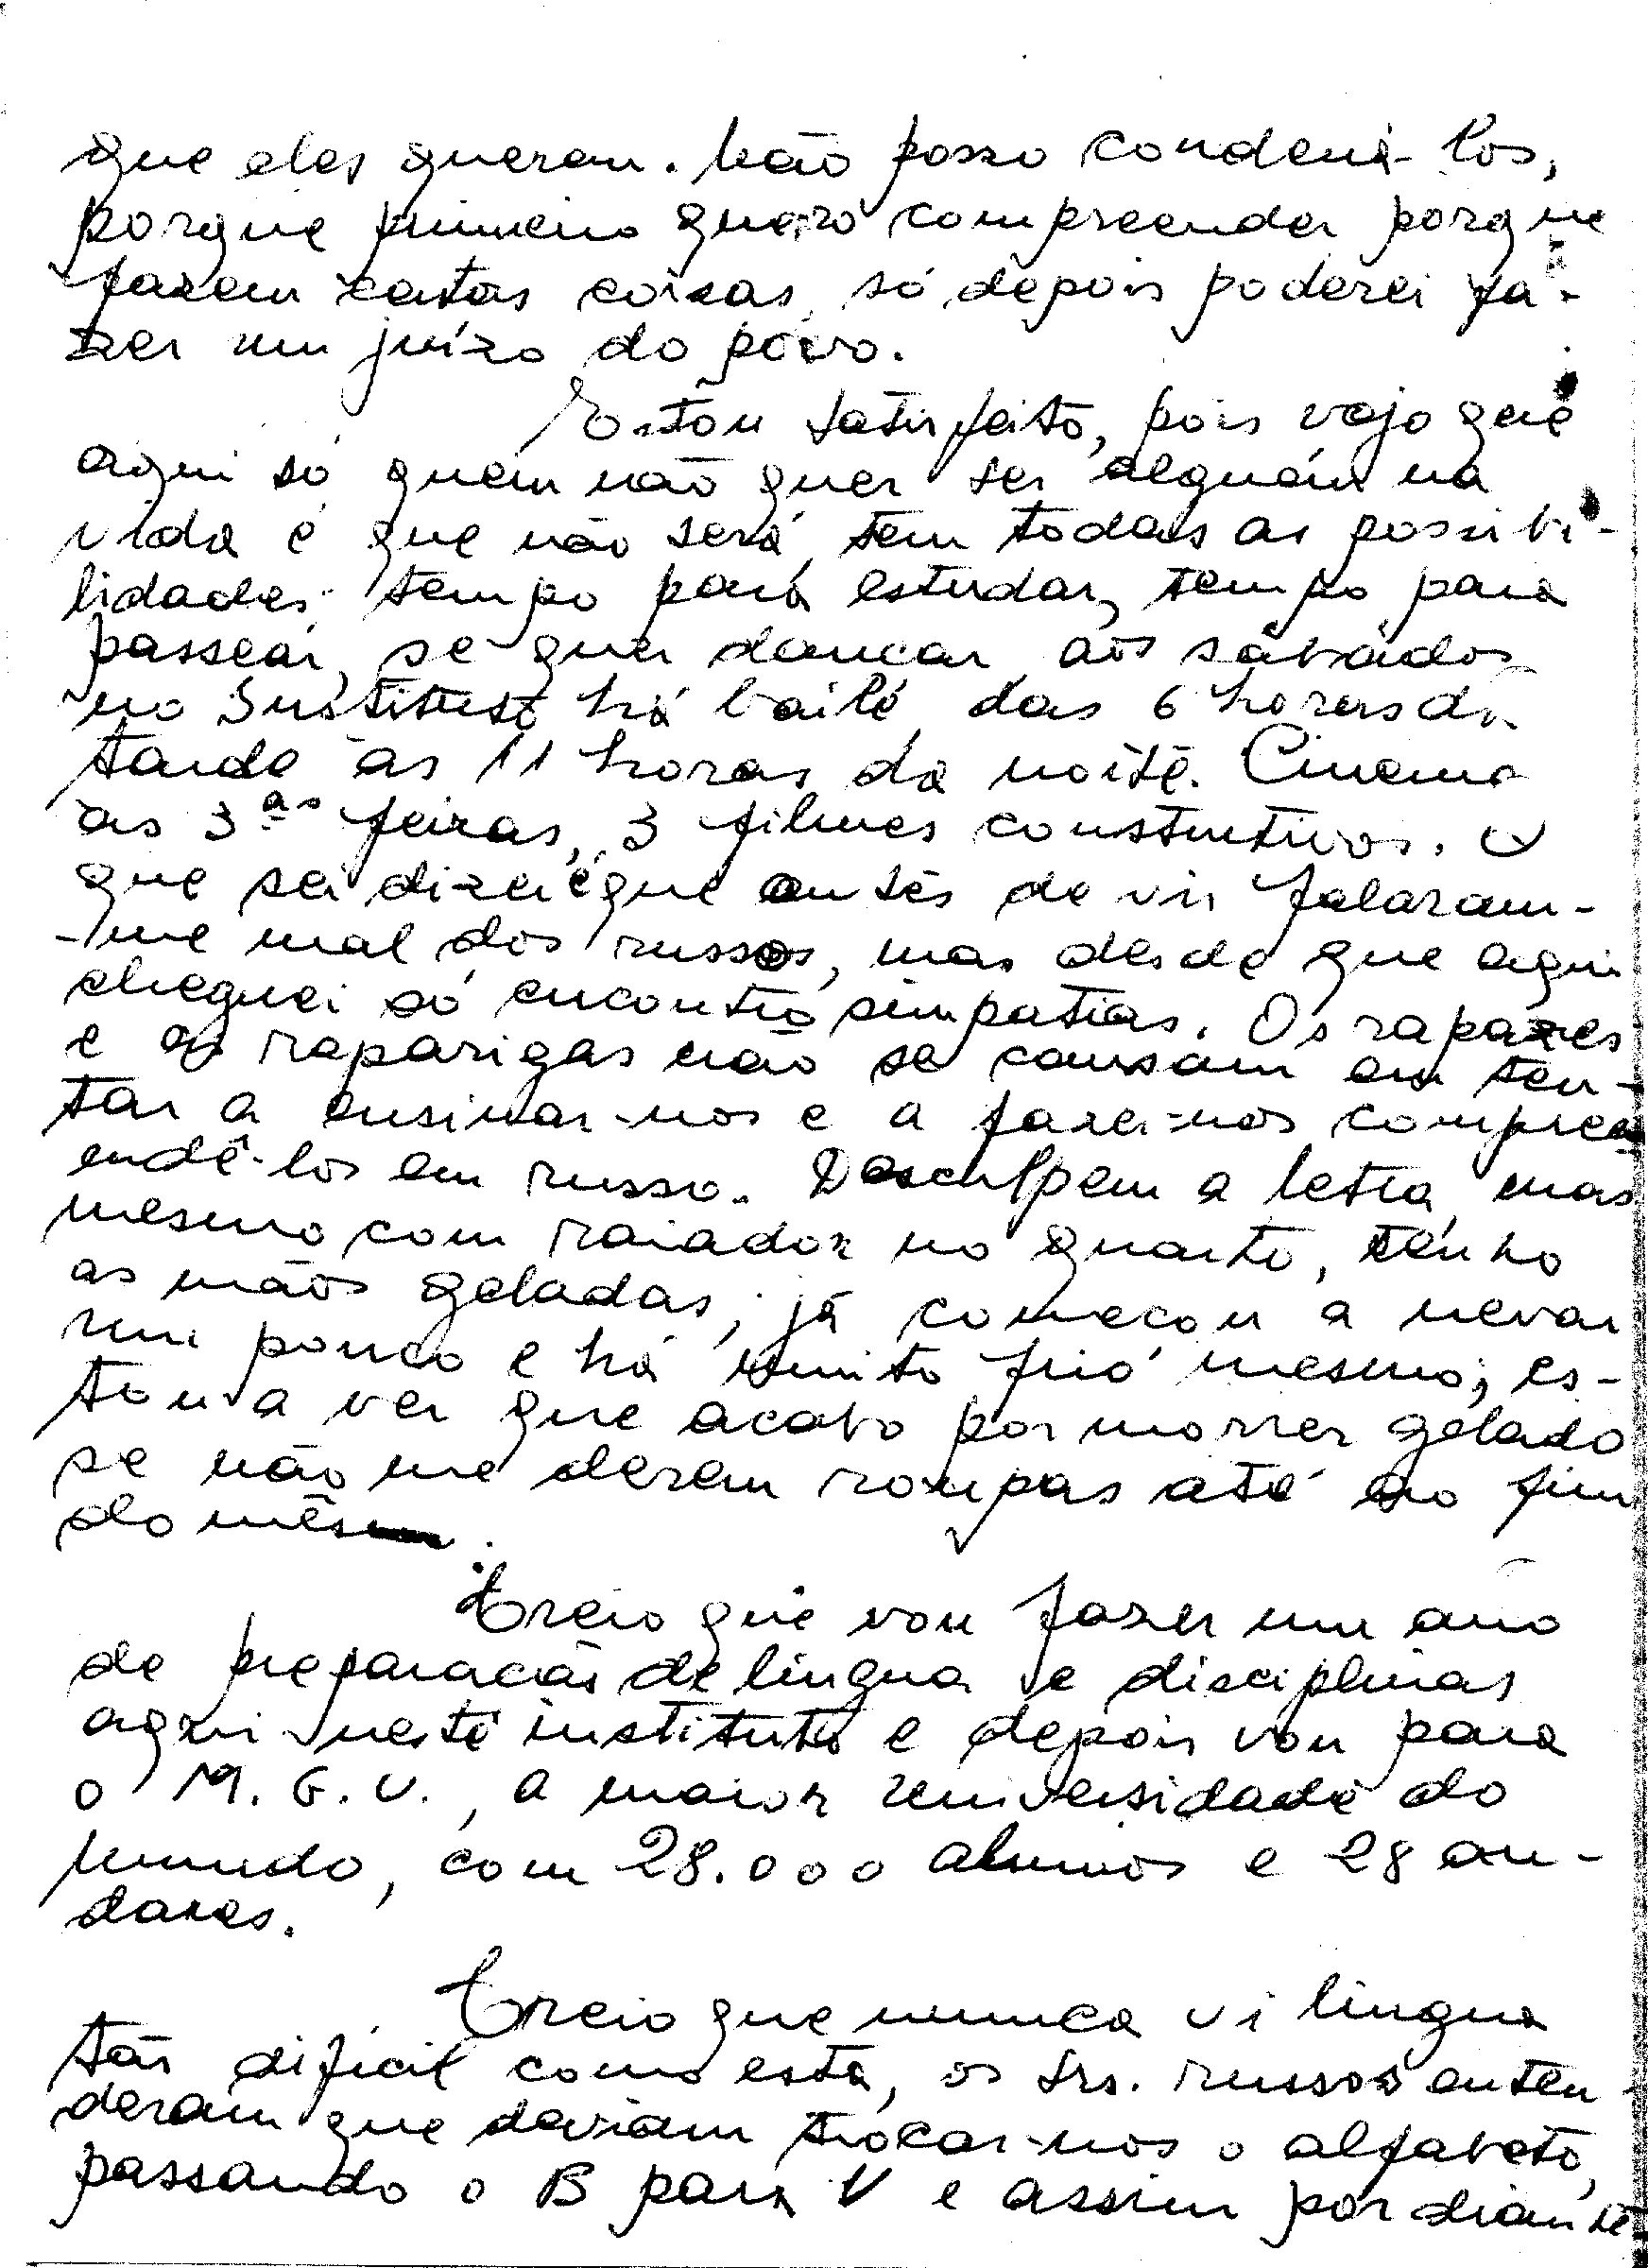 que eles queram. Não posso condená-los,
porque primeiro quero compreender porque
fazem certas coisas, só depois poderei fa-
zer um juízo do povo.
Estou satisfeito, pois vejo que
aqui só quem não quer ser alguém na
vida é que não será, tem todas as possibi-
lidades: tempo para estudar, tempo para
passear, se quer dançar, aos sábados
no Instituto há baile das 6 horas da
tarde às 11 horas da noite. Cinema
às 3ªs feiras, 3 filmes construtivos. O
que sei dizer é que antes de vir falaram-
-me mal dos russos, mas desde que aqui
cheguei só encontro simpatias. Os rapazes
e as raparigas não se cansam em ten-
tar a ensinar-nos e a fazer-nos compree
endê-los em russo. Desculpem a letra, mas
mesmo com raiador no quarto, tenho
as mãos geladas, já começou a nevar
um pouco e há muito frio mesmo; es-
tou a ver que acabo por morrer gelado
se não me deram roupas até ao fim
do mês.
Creio que vou fazer um ano
de preparação de língua e disciplinas
aqui neste instituto e depois vou para
o M. G. U., a maior universidade do
mundo, com 28.000 alunos e 28 an-
dares.
Creio que nunca vi língua
tão difícil como esta, os srs. russos enten
deram que deviam trocar-nos o alfabeto,
passando o B para V e assim por diante